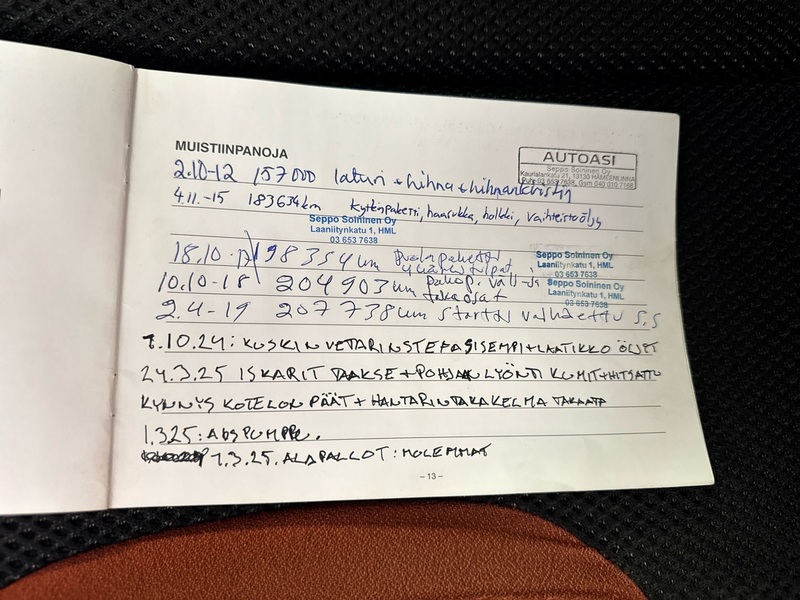 MUISTIINPANOJA
AUTOASI
Seppo Soininen Oy
Kaurialankatu 21, 13130 HÄMEENLINNA
Puh. 03 653 7638, Gsm 040 010 7168
2.10-12 157000 laturi + hihna + hihnankiristin
4.11.-15 183634km kytkinpaketti, haarukka, holkki, vaihteistoöljy
Seppo Soininen Oy
Laaniitynkatu 1, HML
03 653 7638
18.10. 198354 km
Seppo Soininen Oy
Laaniitynkatu 1, HML
03 653 7638
10.10-18 204903 km pakop. väli-ja
takaosat
Seppo Soininen Oy
Laaniitynkatu 1, HML
03 653 7638
2.4-19 207738 km startti vaihdettu S.S
1.10.24: KUSKIN VETARIN STEFA SISEMPI + LAATIKKO ÖLJYT
24.3.25 ISKARIT TAAKSE + POHJAAN LYÖNTI KUMIT + HITSATTU
KYNNYS KOTELON PÄÄT + HANTARIN TAKAKELMA TAKAATA
1.3.25: ABS PUMPPU.
1.3.25. ALAPALLOT: MOLEMMAT
– 13 –